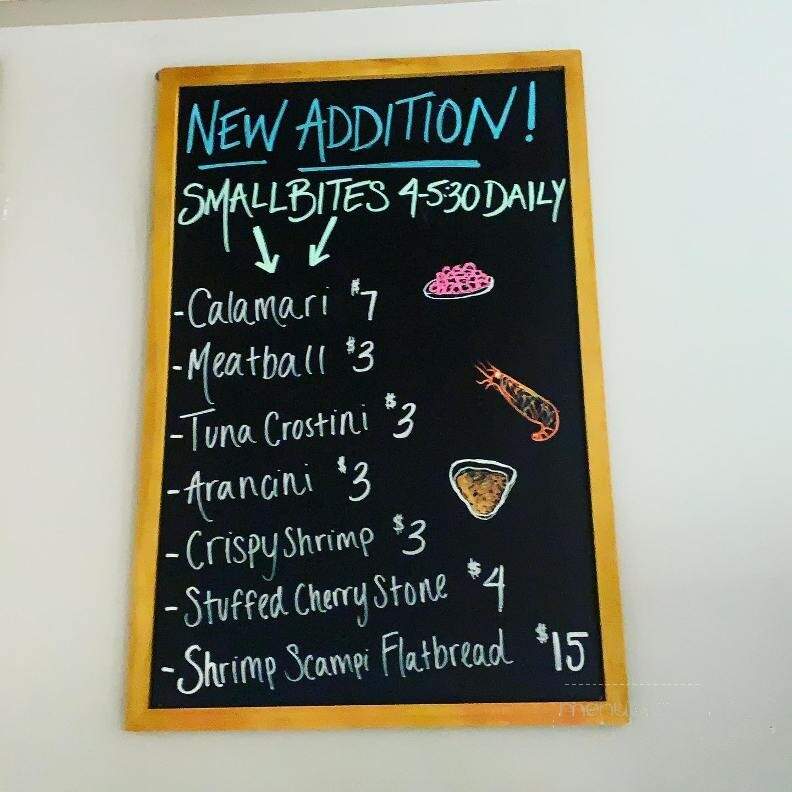 NEW ADDITION!
SMALL BITES 4-5:30 DAILY
-Calamari $7
-Meatball $3
-Tuna Crostini $3
-Arancini $3
-Crispy Shrimp $3
-Stuffed Cherry Stone $4
-Shrimp Scampi Flatbread $15